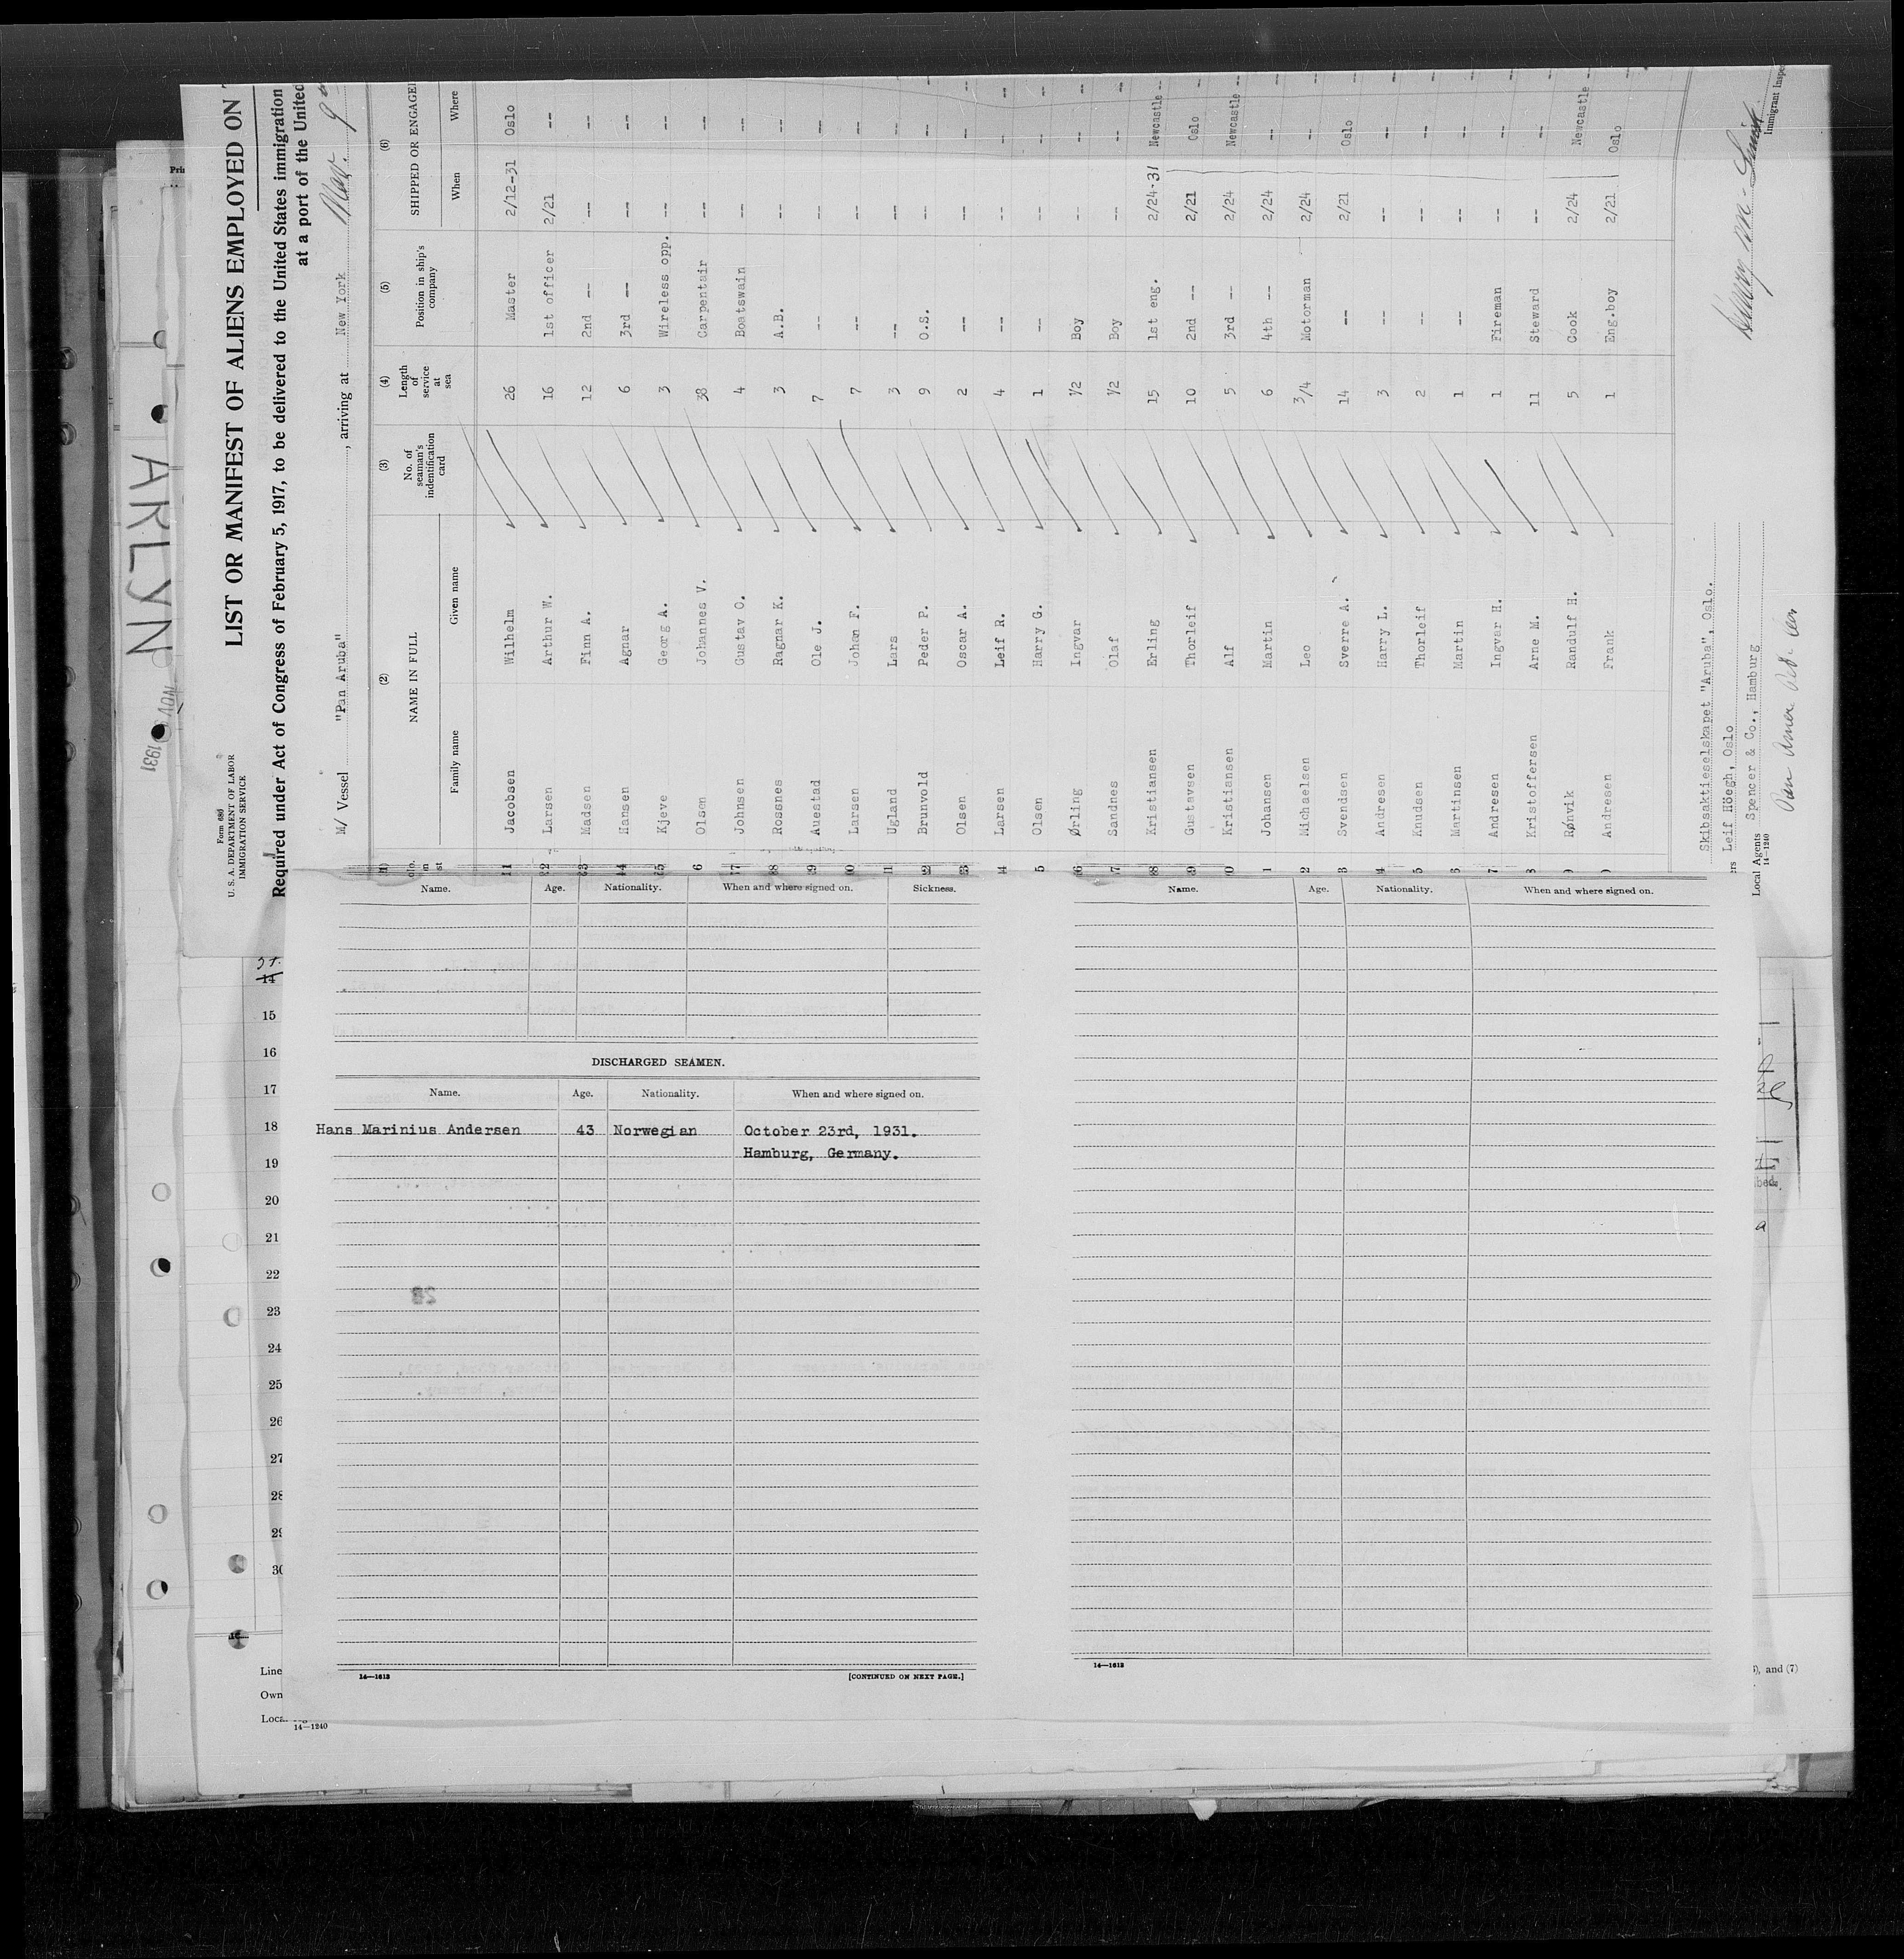 ARLYN
NOV
1931
Form 686
U. S. A. DEPARTMENT OF LABOR
IMMIGRATION SERVICE
LIST OR MANIFEST OF ALIENS EMPLOYED ON
Required under Act of Congress of February 5, 1917, to be delivered to the United States immigration
at a port of the United
M/ Vessel "Pan Aruba", arriving at New York Nov. 9
(1) (2) (3) (4) (5) (6)
NAME IN FULL No. of seaman's indentification card Length of service at sea Position in ship's company SHIPPED OR ENGAGED
Family name Given name When Where
Jacobsen Wilhelm 26 Master 2/12-31 Oslo
Larsen Arthur W. 16 1st officer 2/21 --
Madsen Finn A. 12 2nd -- -- --
Hansen Agnar 6 3rd -- -- --
Kjeve Georg A. 3 Wireless opp. -- --
Olsen Johannes V. 38 Carpentair -- --
Johnsen Gustav O. 4 Boatswain -- --
Rossnes Ragnar K. 3 A.B. -- --
Auestad Ole J. 7 -- -- --
Larsen Johan F. 7 -- -- --
Ugland Lars 3 -- -- --
Brunvold Peder P. 9 O.S. -- --
Olsen Oscar A. 2 -- -- --
Larsen Leif R. 4 -- -- --
Olsen Harry G. 1 -- -- --
Ørling Ingvar 1/2 Boy -- --
Sandnes Olaf 1/2 Boy -- --
Kristiansen Erling 15 1st eng. 2/24-31 Newcastle --
Gustavsen Thorleif 10 2nd -- 2/21 Oslo --
Kristiansen Alf 5 3rd -- 2/24 Newcastle --
Johansen Martin 6 4th -- 2/24 --
Michaelsen Leo 3/4 Motorman 2/24 --
Svendsen Sverre A. 14 -- 2/21 Oslo
Andresen Harry L. 3 -- -- --
Knudsen Thorleif 2 -- -- --
Martinsen Martin 1 -- -- --
Andresen Ingvar H. 1 Fireman -- --
Kristoffersen Arne M. 11 Steward -- --
Rønvik Randulf H. 5 Cook 2/24 Newcastle --
Andresen Frank 1 Eng.boy 2/21 Oslo
Skibsaktieselskapet "Aruba", Oslo.
Leif Höegh, Oslo
Local Agents Spencer & Co., Hamburg
14-1240
Immigrant Inspe
Name. Age. Nationality. When and where signed on. Sickness.
DISCHARGED SEAMEN.
Name. Age. Nationality. When and where signed on.
Hans Marinius Andersen 43 Norwegian October 23rd, 1931.
Hamburg, Germany.
14—1613 [CONTINUED ON NEXT PAGE.]
Name. Age. Nationality. When and where signed on.
14—1613
14
15
16
17
18
19
20
21
22
23
24
25
26
27
28
29
30
Line
Own
Loca
14—1240
, and (7)